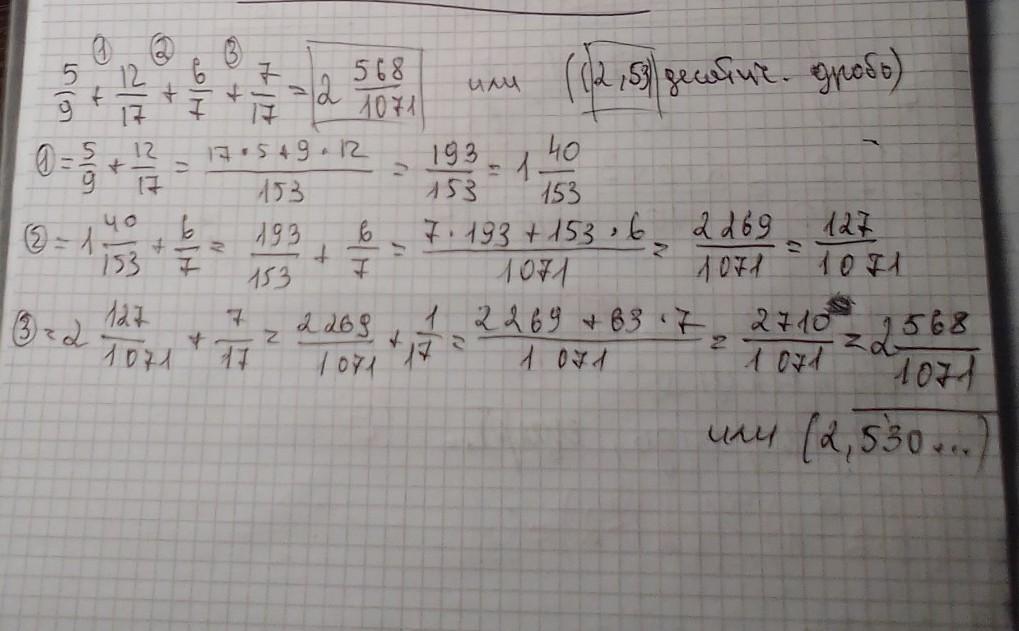 ① ② ③
5/9 + 12/17 + 6/7 + 7/17 = 2 568/1071 или ((2,53) десятич. дробь)
① = 5/9 + 12/17 = (17·5+9·12)/153 = 193/153 = 1 40/153
② = 1 40/153 + 6/7 = 193/153 + 6/7 = (7·193+153·6)/1071 = 2269/1071 = 127/1071
③ = 2 127/1071 + 7/17 = 2269/1071 + 1/17 = (2269+63·7)/1071 = 2710/1071 = 2 568/1071
или (2,530...)